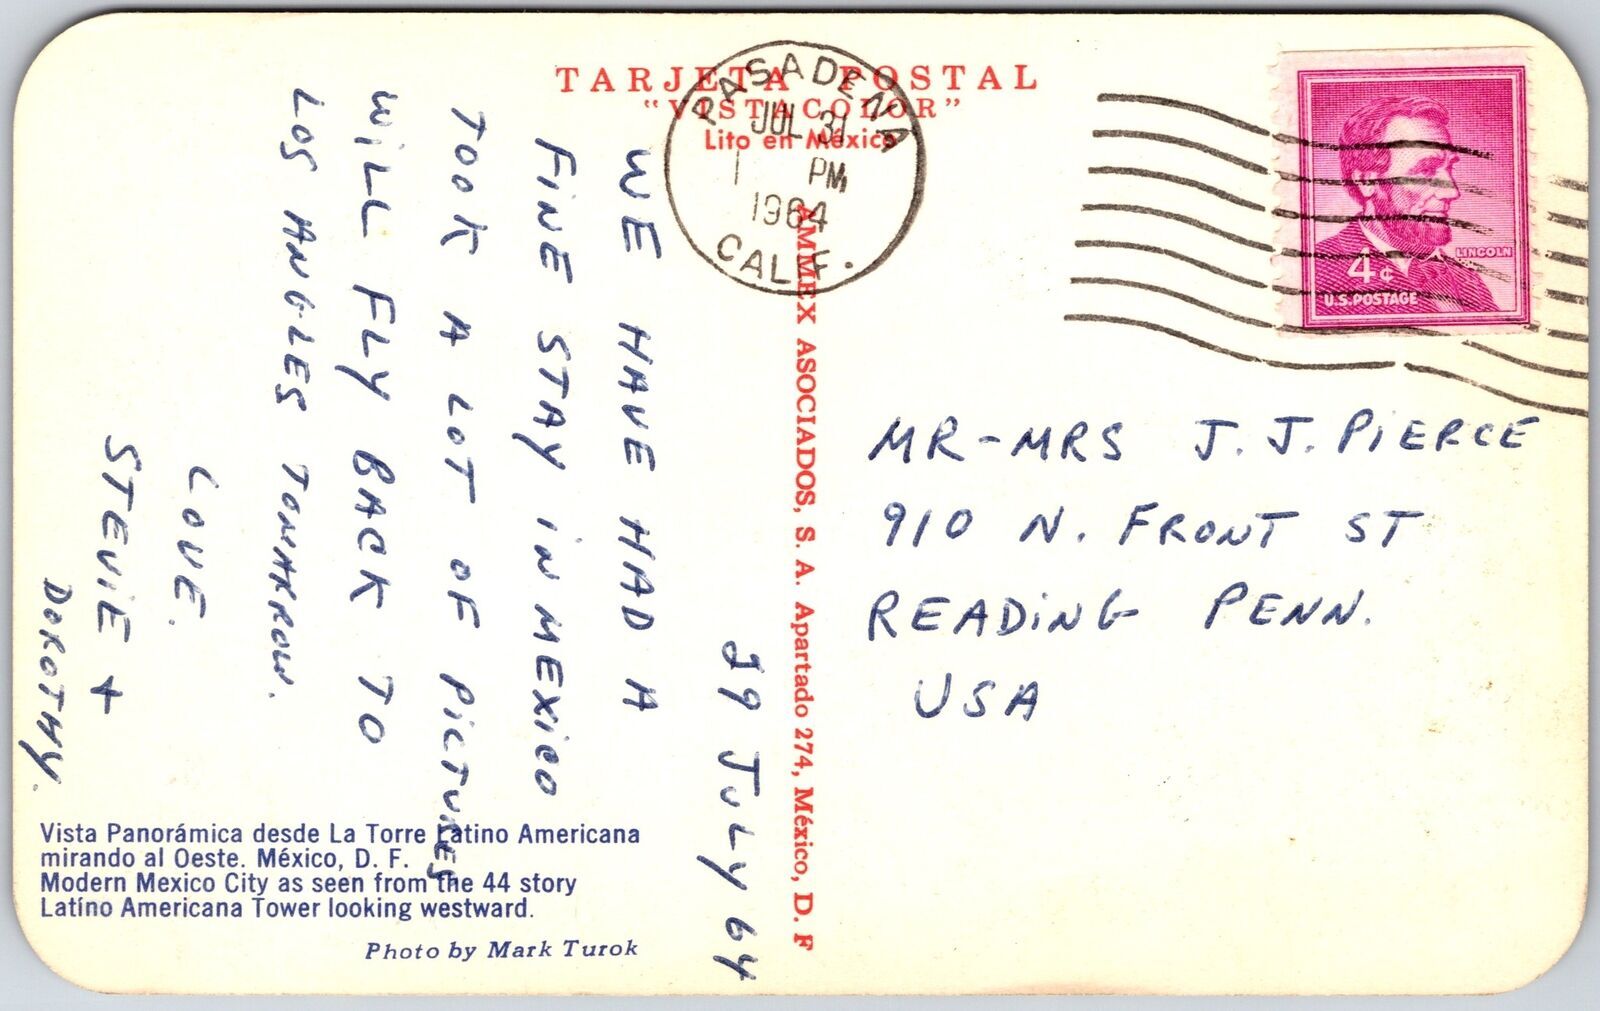 TARJETA POSTAL
"VISTACOLOR"
Lito en México
PASADENA
JUL 31
1 PM
1964
CALIF.
LINCOLN
4¢
U.S.POSTAGE
AMMEX ASOCIADOS, S. A. Apartado 274, México, D. F
29 JULY 64
WE HAVE HAD A
FINE STAY IN MEXICO
TOOK A LOT OF PICTURES
WILL FLY BACK TO
LOS ANGLES TOMARROW.
LOVE.
STEVIE +
DOROTHY.
MR-MRS J. J. PIERCE
910 N. FRONT ST
READING PENN.
USA
Vista Panorámica desde La Torre Latino Americana
mirando al Oeste. México, D. F.
Modern Mexico City as seen from the 44 story
Latino Americana Tower looking westward.
Photo by Mark Turok